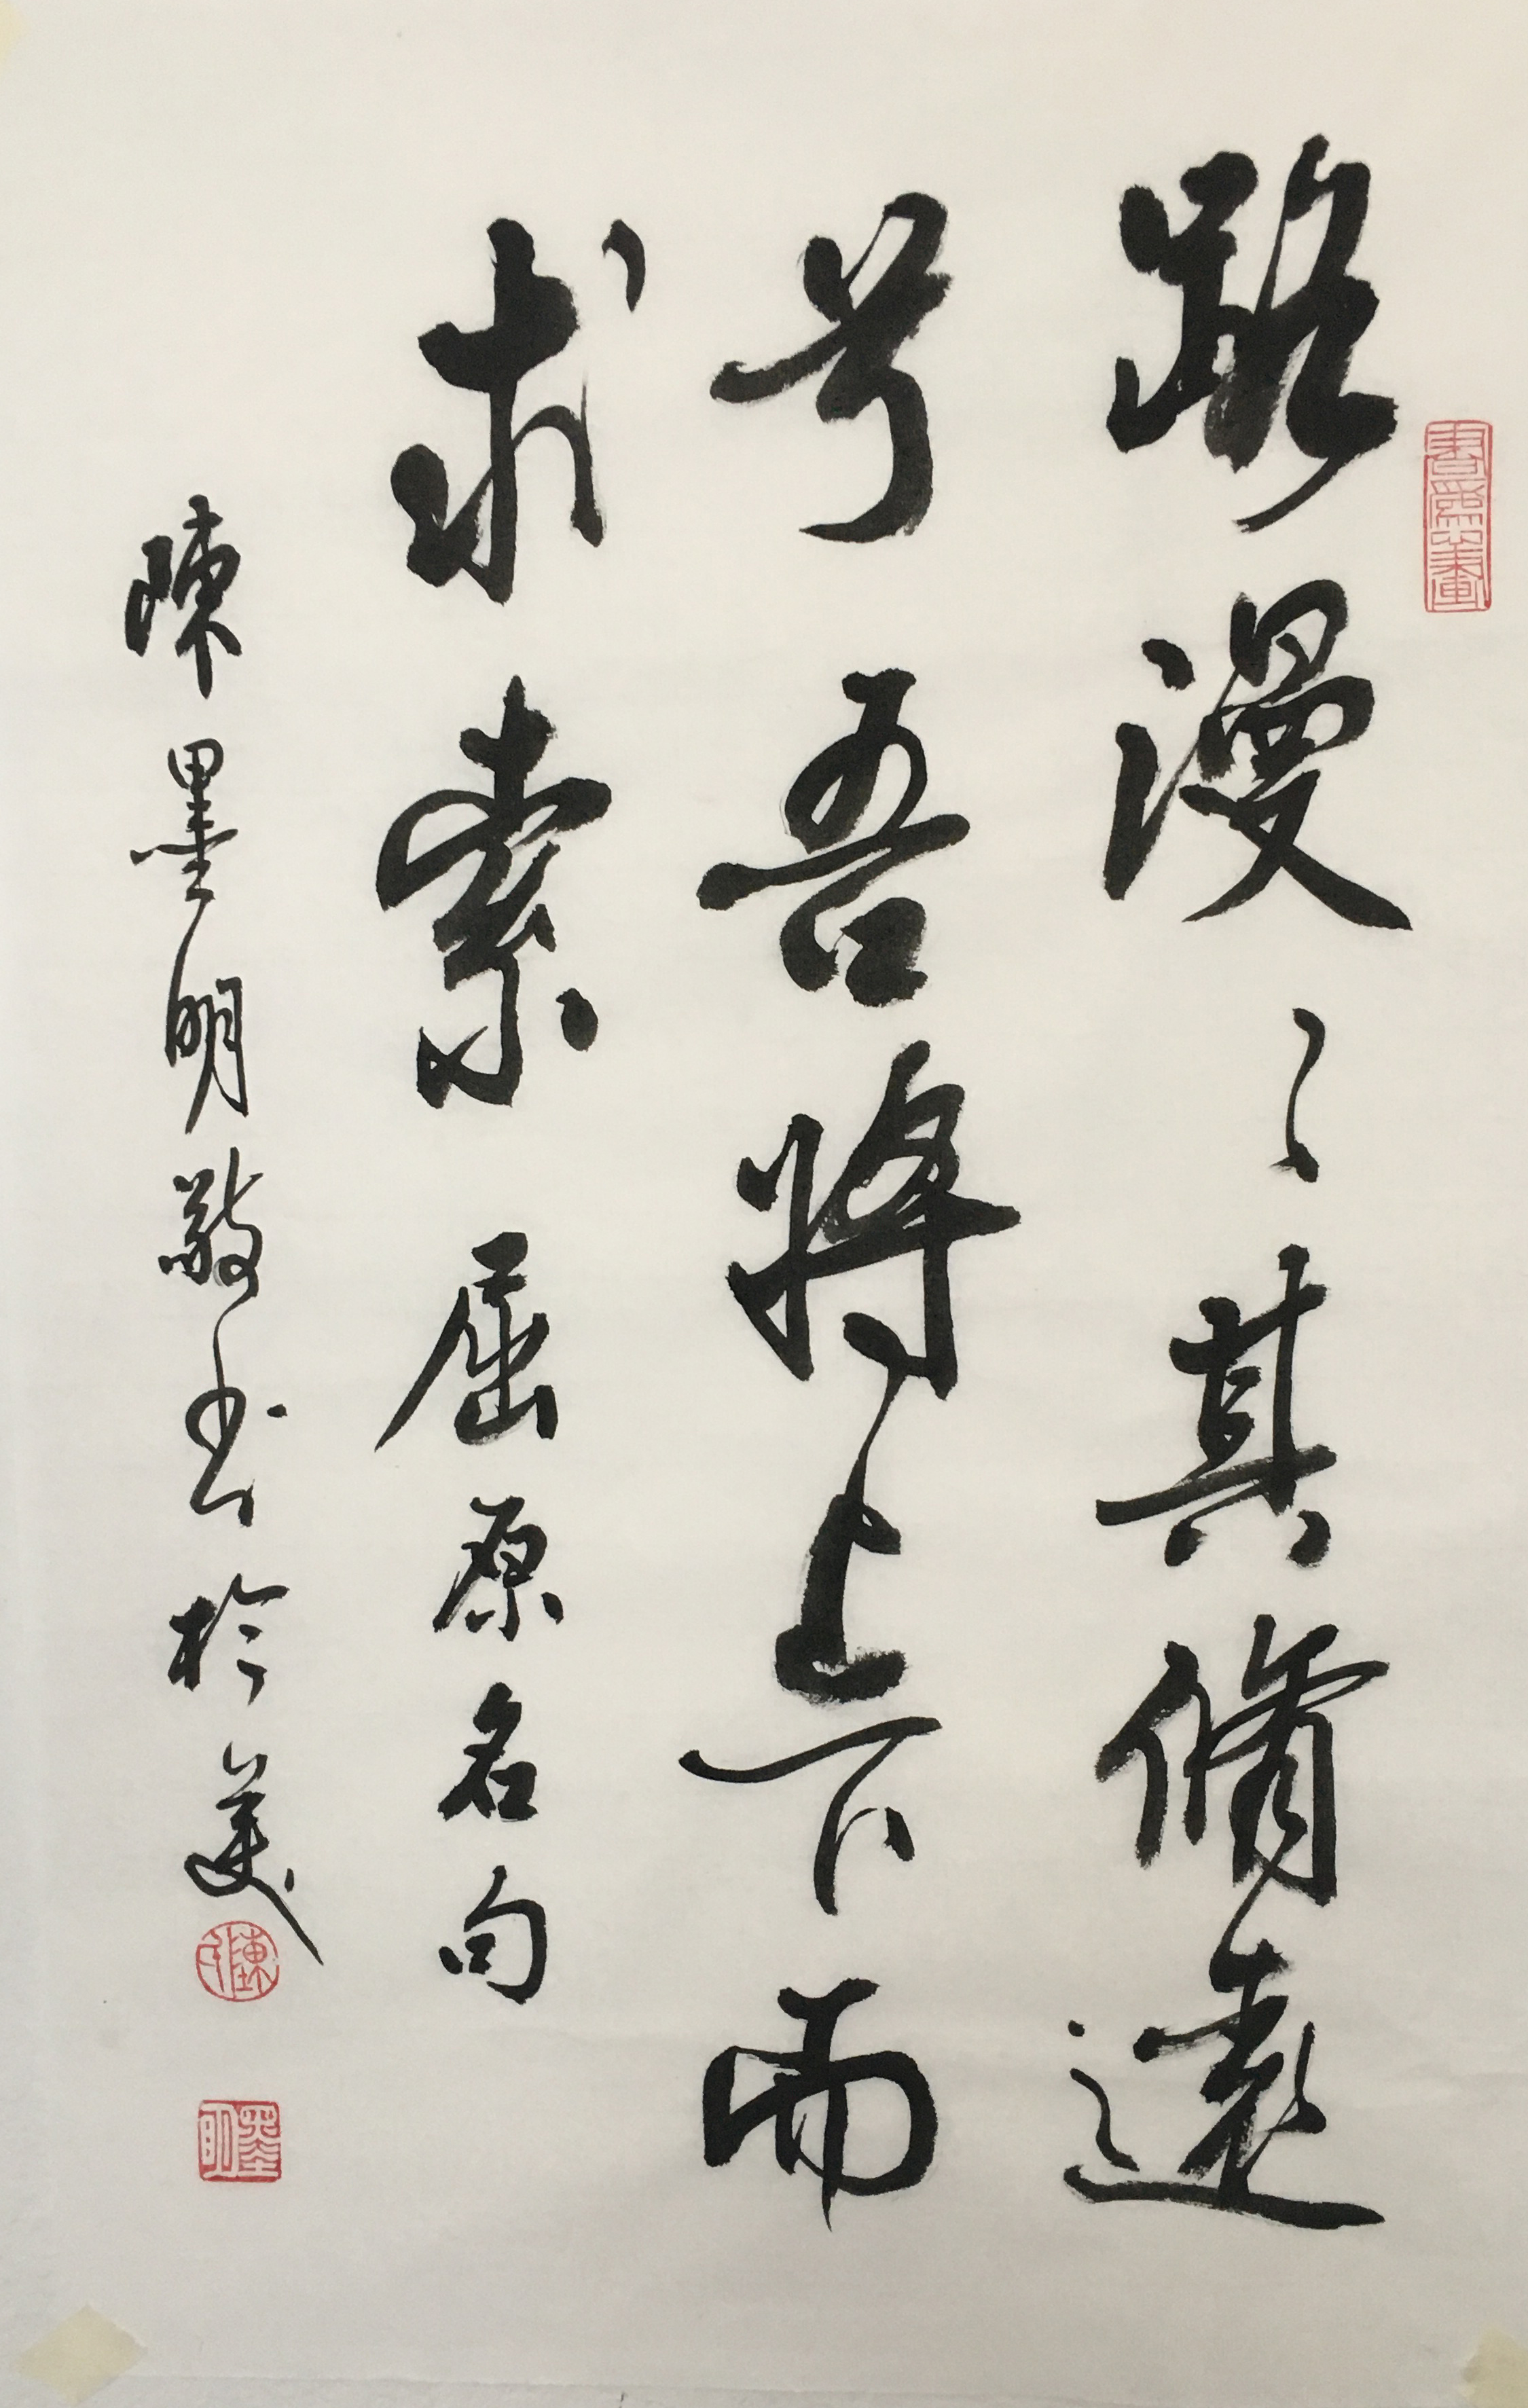 路漫〻其脩遠
兮吾將上下而
求索 屈原名句
陳墨明敬书於美